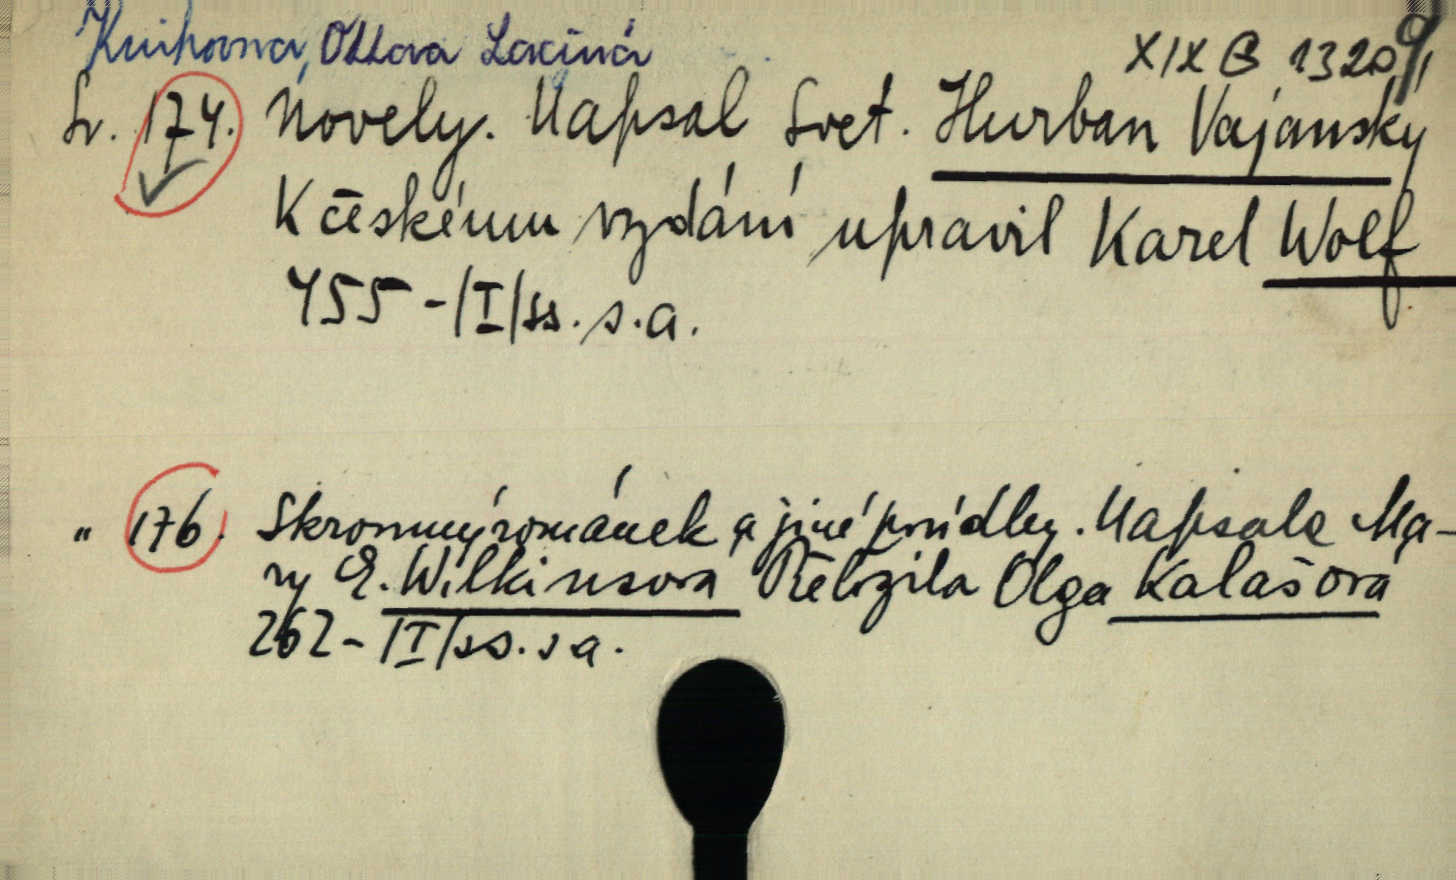 Knihovna, Ottova Laciná
XIX B 1320/9
Sv. 174. Novely. Napsal Svet. Hurban Vajanský
K českému vydání upravil Karel Wolf
455 - /I/ ss. s. a.
" 176. Skromný románek a jiné povídky. Napsala Ma-
ry E. Wilkinsova Přeložila Olga Kalašova
262 - /I/ ss. s a.